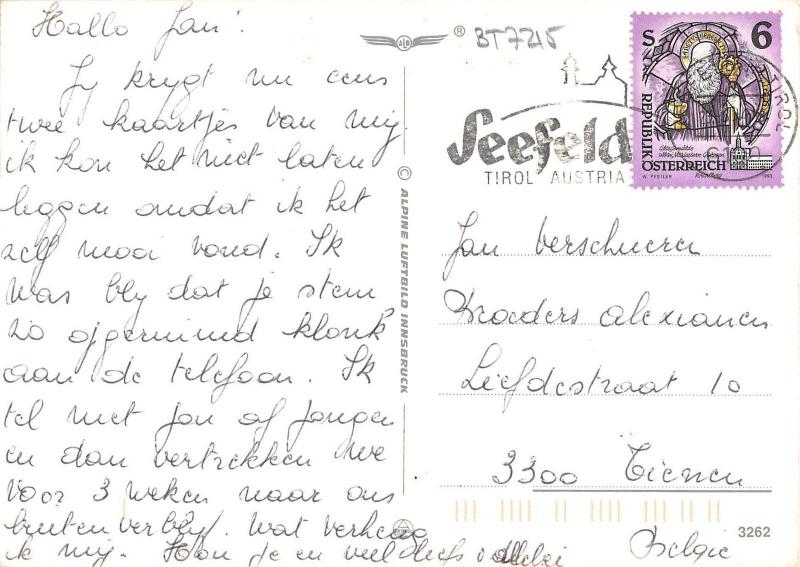 Hallo Jan!
Jy krygt nu eens
twee kaartjes van my.
ik kon het niet laten
omdat ik het
zelf mooi vond. Ik
was bly dat je stem
zo opgeruimd klonk
aan de telefoon. Ik
tel met Jan af
en dan vertrekken we
voor 3 weken naar ons
buitenverblyf. Wat verheug
ik my. Hou je en veel liefs
BT7215
®
Seefeld
TIROL AUSTRIA
TIROL
S 6
REPUBLIK
ÖSTERREICH
W. PFEILER 1993
© ALPINE LUFTBILD INNSBRUCK
Jan Verschueren
Broeders alexianen
Liefdestraat 10
3300 Tienen
België
3262